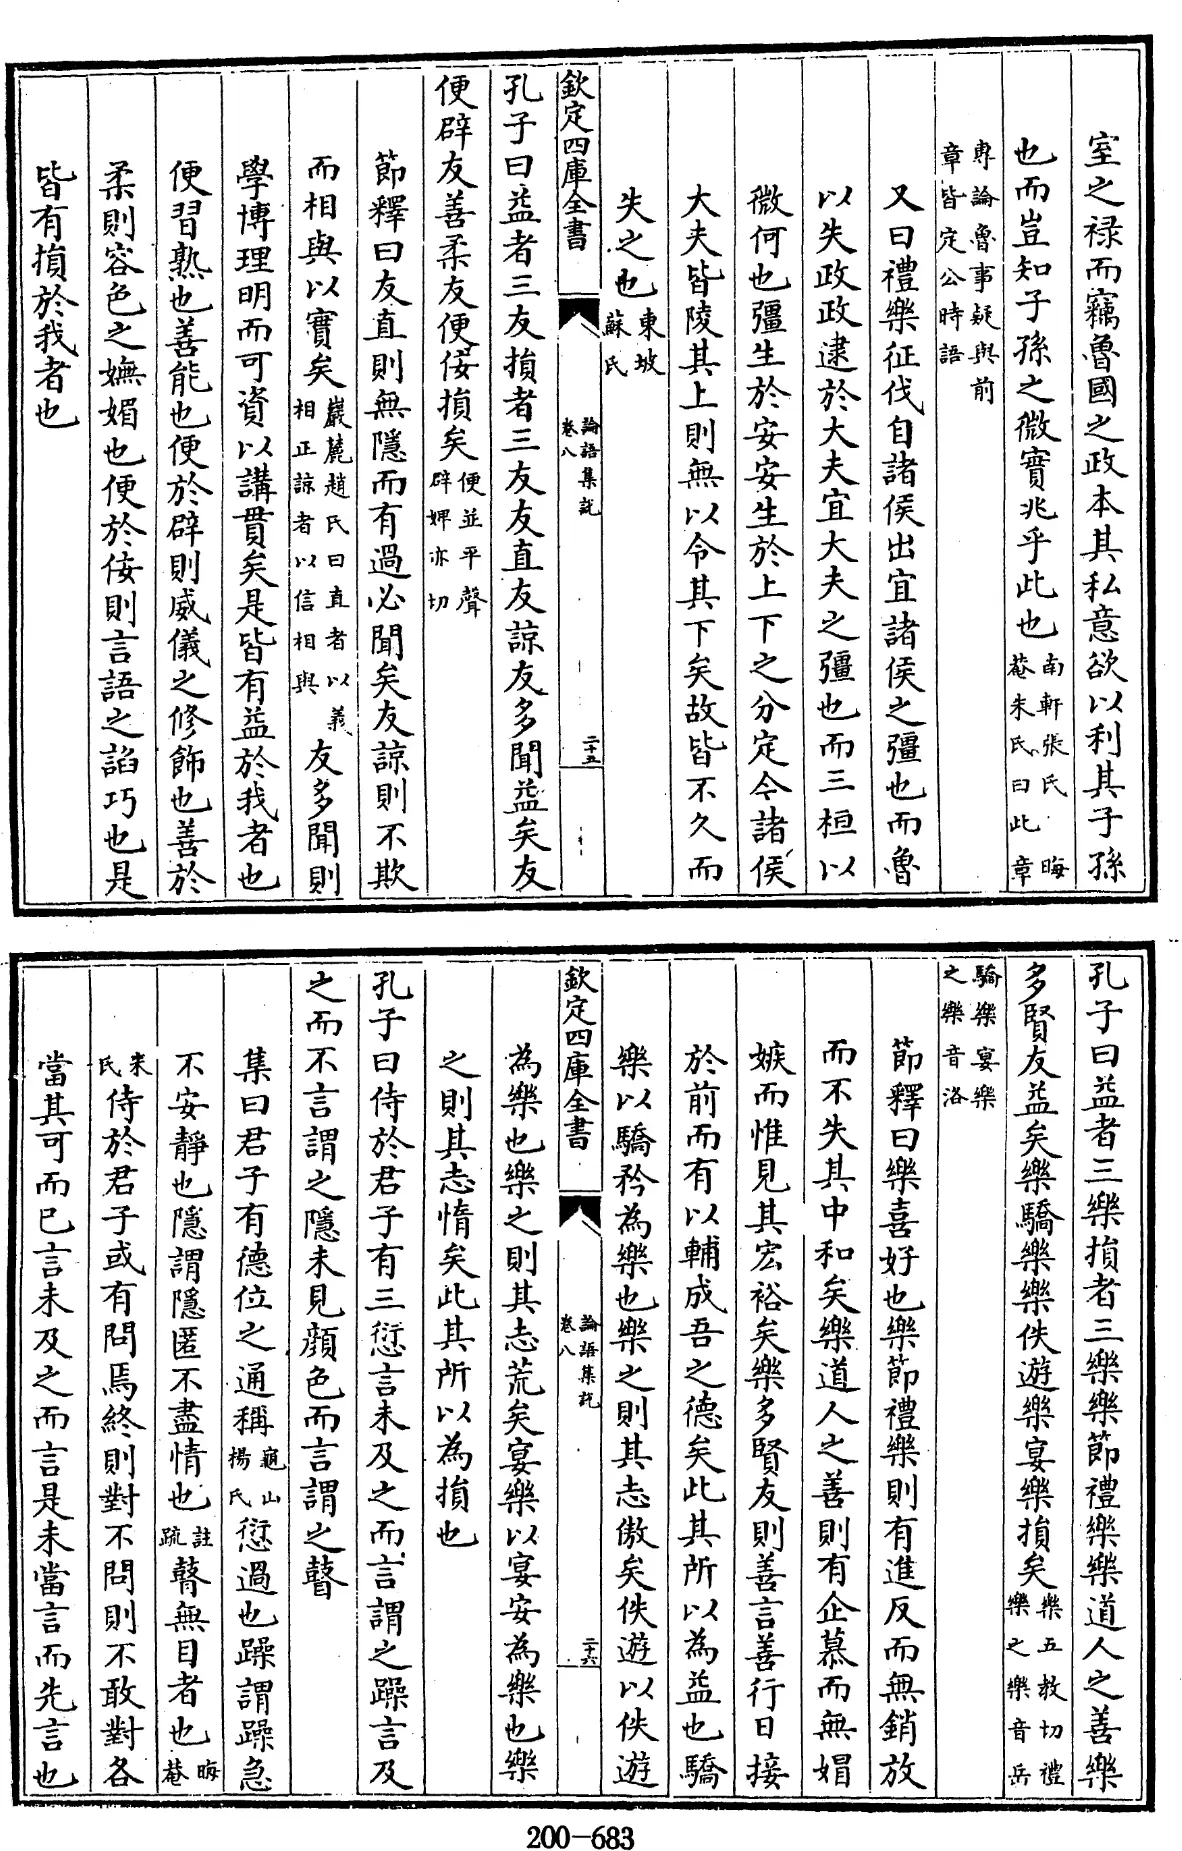 室之祿而竊魯國之政本其私意欲以利其子孫
也而豈知子孫之微實兆乎此也南軒張氏晦菴朱氏曰此章
專論魯事疑與前章皆定公時語
又曰禮樂征伐自諸侯出宜諸侯之彊也而魯
以失政政逮於大夫宜大夫之彊也而三桓以
微何也彊生於安安生於上下之分定今諸侯
大夫皆陵其上則無以令其下矣故皆不久而
失之也東坡蘇氏
欽定四庫全書 論語集說卷八 二十五
孔子曰益者三友損者三友友直友諒友多聞益矣友
便辟友善柔友便佞損矣便並平聲辟婢亦切
節釋曰友直則無隱而有過必聞矣友諒則不欺
而相與以實矣巖麓趙氏曰直者以義相正諒者以信相與友多聞則
學博理明而可資以講貫矣是皆有益於我者也
便習熟也善能也便於辟則威儀之修飾也善於
柔則容色之嫵媚也便於佞則言語之諂巧也是
皆有損於我者也
孔子曰益者三樂損者三樂樂節禮樂樂道人之善樂
多賢友益矣樂驕樂樂佚遊樂宴樂損矣樂五教切禮樂之樂音岳
驕樂宴樂之樂音洛
節釋曰樂喜好也樂節禮樂則有進反而無銷放
而不失其中和矣樂道人之善則有企慕而無媢
嫉而惟見其宏裕矣樂多賢友則善言善行日接
於前而有以輔成吾之德矣此其所以為益也驕
樂以驕矜為樂也樂之則其志傲矣佚遊以佚遊
欽定四庫全書 論語集說卷八 二十六
為樂也樂之則其志荒矣宴樂以宴安為樂也樂
之則其志惰矣此其所以為損也
孔子曰侍於君子有三愆言未及之而言謂之躁言及
之而不言謂之隱未見顔色而言謂之瞽
集曰君子有德位之通稱龜山楊氏愆過也躁謂躁急
不安靜也隱謂隱匿不盡情也註疏瞽無目者也晦菴
朱氏侍於君子或有問焉終則對不問則不敢對各
當其可而已言未及之而言是未當言而先言也
200-683